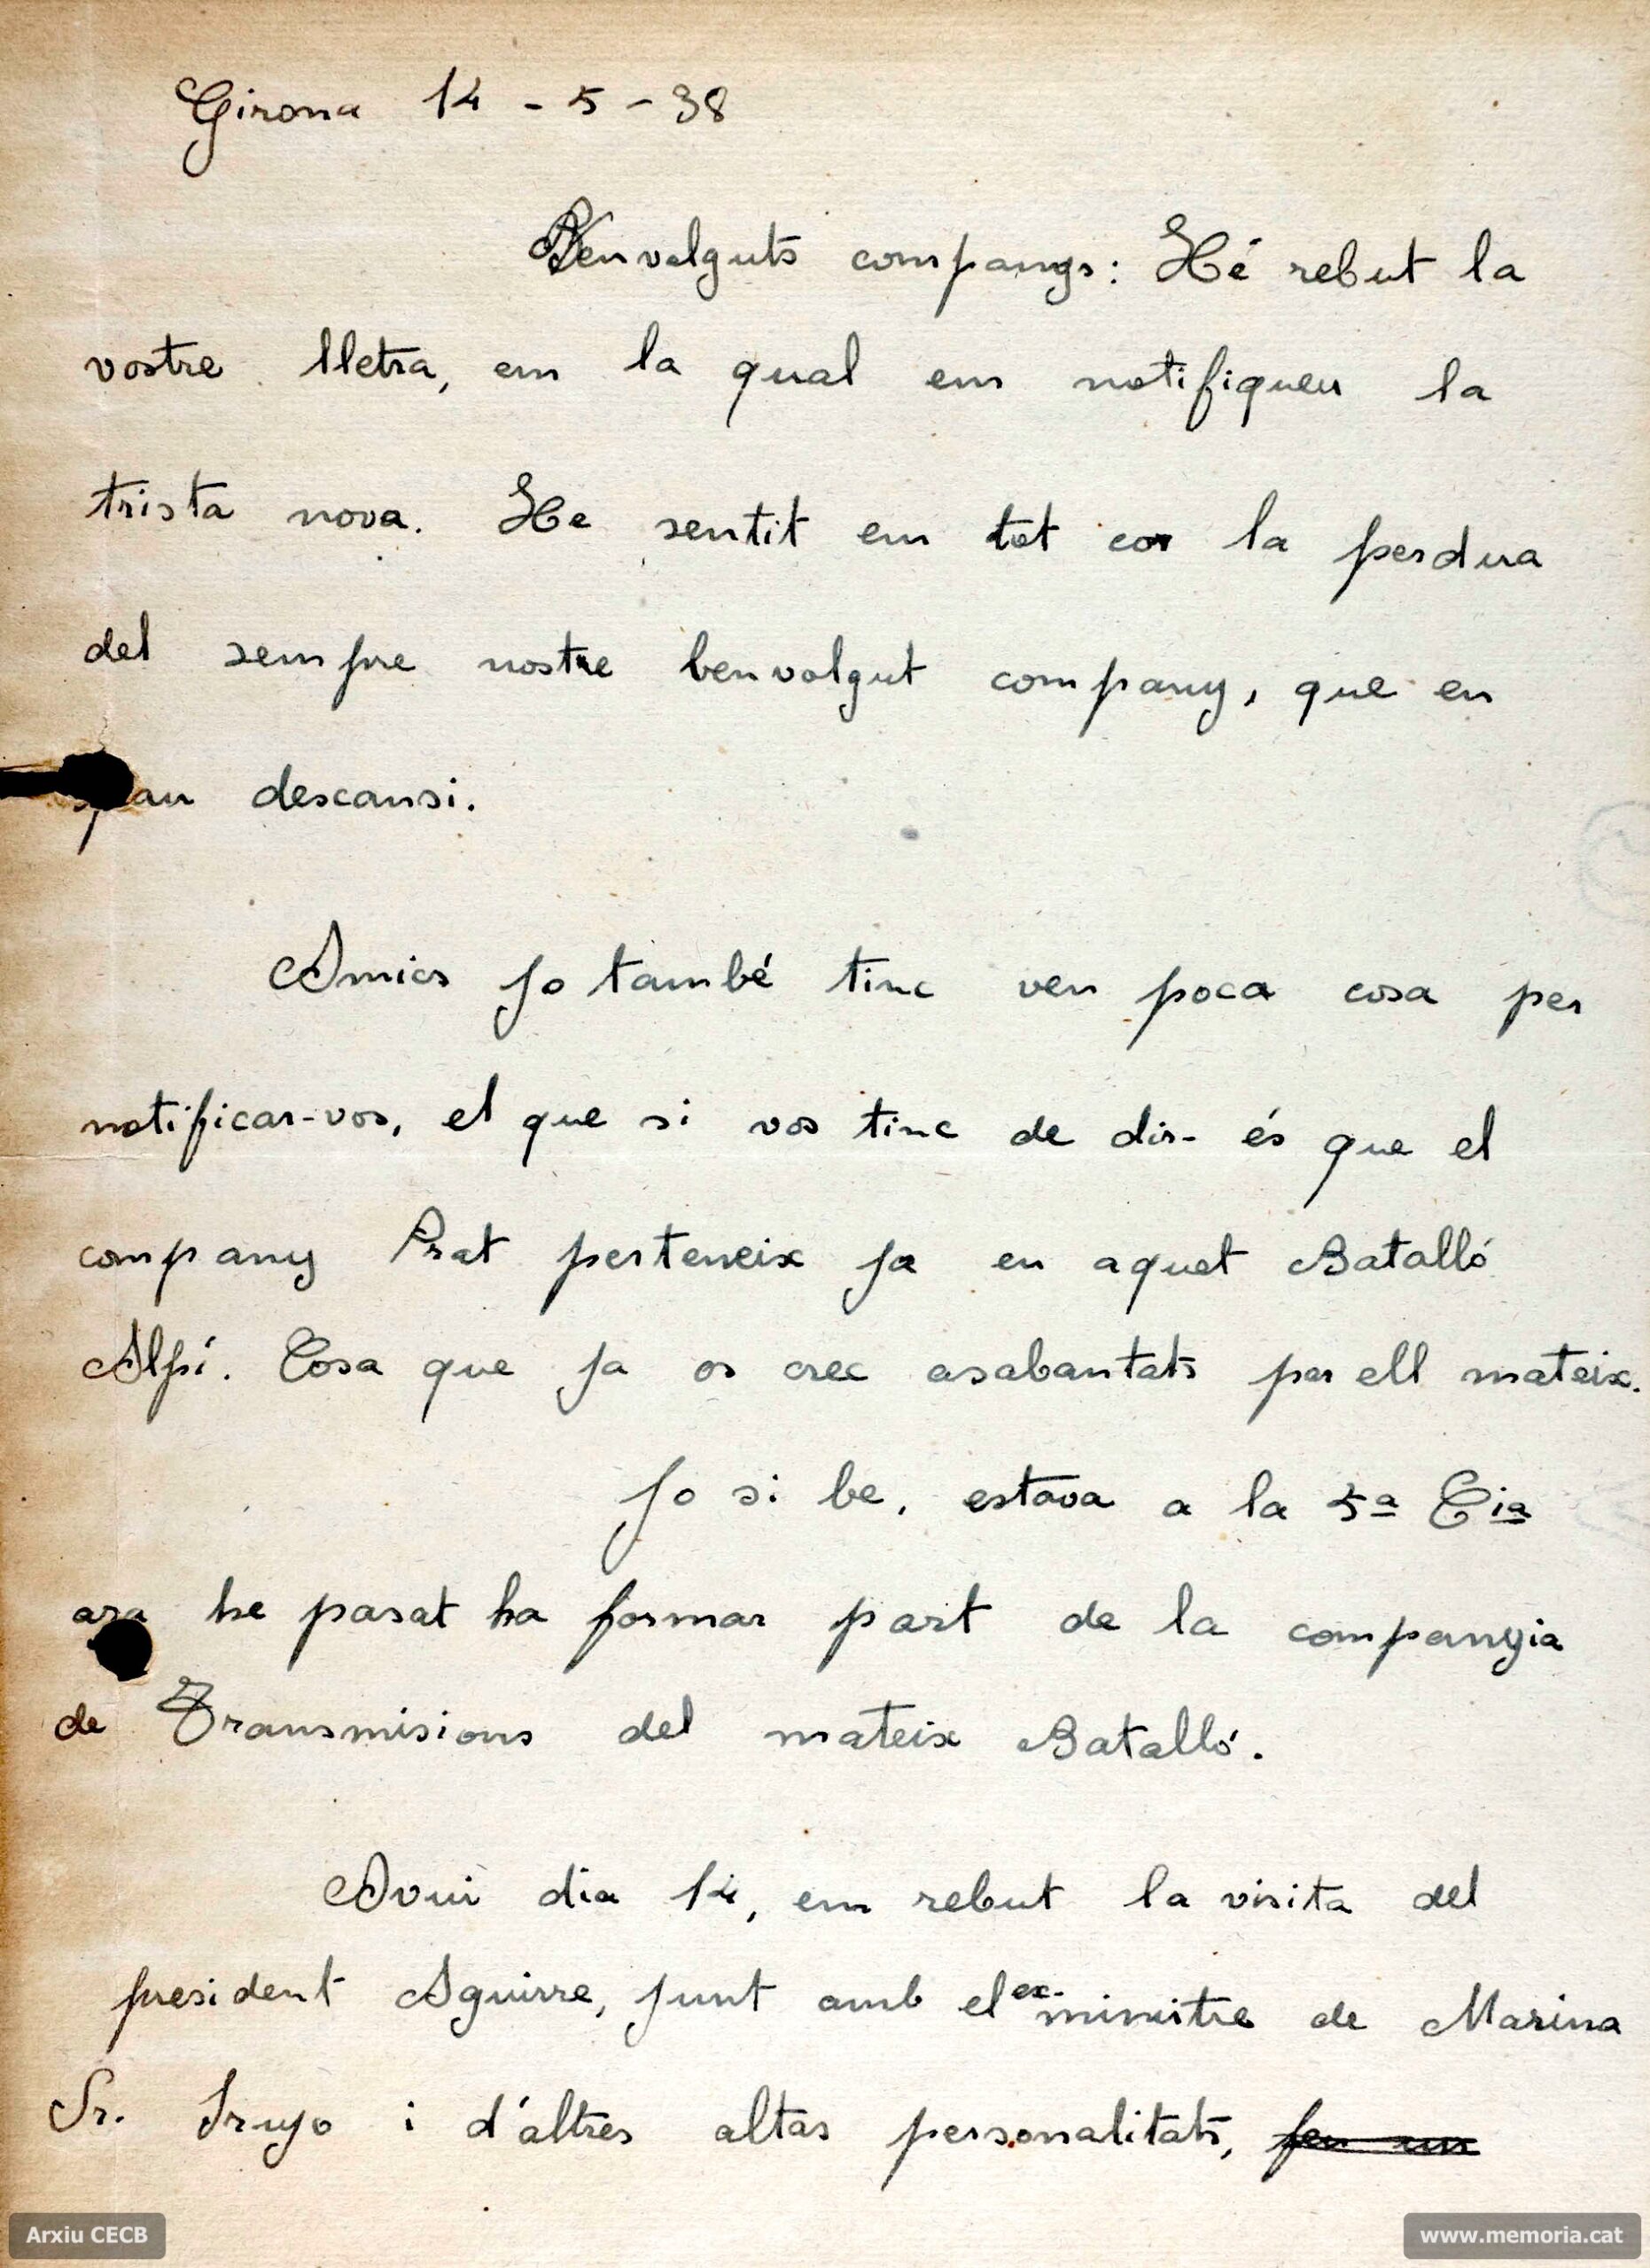 Girona 14 - 5 - 38
Benvolguts companys: Hé rebut la
vostre lletra, em la qual em notifiqueu la
trista nova. He sentit em tot cor la perdua
del sempre nostre benvolgut company, que en
pau descansi.
Amics jo també tinc ven poca cosa per
notificar-vos, el que si vos tinc de dir- és que el
company Prat perteneix ja en aquet Batalló
Alpí. Cosa que ja os crec asabantats per ell mateix.
Jo si be, estava a la 5ª Cia
ara he pasat ha formar part de la companyia
de Transmisions del mateix Batalló.
Avui dia 14, em rebut la visita del
president Aguirre, junt amb el ex-ministre de Marina
Sr. Irujo i d'altres altas personalitats, feu un
Arxiu CECB
www.memoria.cat